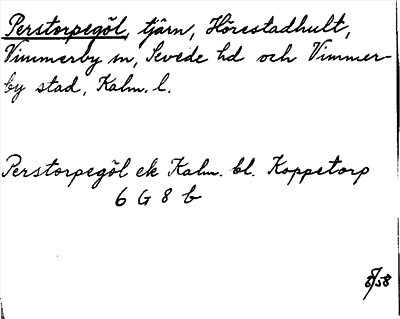 Perstorpegöl, tjärn, Hörestadhult,
Vimmerby sn, Sevede hd och Vimmer-
by stad, Kalm. l.
Perstorpegöl ek Kalm. bl. Koppetorp
6 G 8 b
8/58